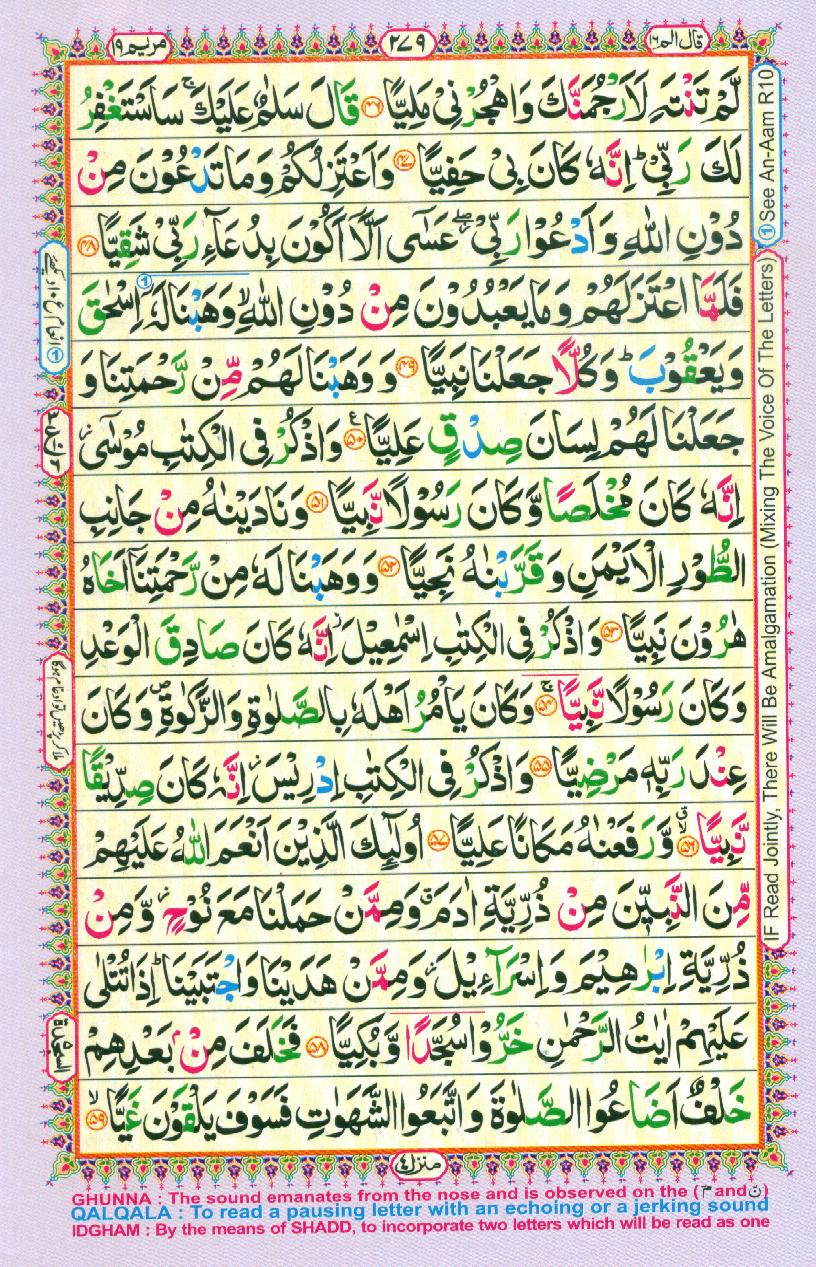 قال الم ١٦
٢٧٩
مريم ١٩
لَّمْ تَنْتَهِ لَاَرْجُمَنَّكَ وَاهْجُرْنِیْ مَلِیًّا ﴿٤٦﴾ قَالَ سَلٰمٌ عَلَیْكَ ۚ سَاَسْتَغْفِرُ
لَكَ رَبِّیْ ؕ اِنَّهٗ كَانَ بِیْ حَفِیًّا ﴿٤٧﴾ وَاَعْتَزِلُكُمْ وَمَا تَدْعُوْنَ مِنْ
دُوْنِ اللّٰهِ وَاَدْعُوْا رَبِّیْ ۖ عَسٰۤی اَلَّاۤ اَكُوْنَ بِدُعَآءِ رَبِّیْ شَقِیًّا ﴿٤٨﴾
فَلَمَّا اعْتَزَلَهُمْ وَمَا یَعْبُدُوْنَ مِنْ دُوْنِ اللّٰهِ ۙ وَهَبْنَا لَهٗۤ اِسْحٰقَ
وَیَعْقُوْبَ ؕ وَكُلًّا جَعَلْنَا نَبِیًّا ﴿٤٩﴾ وَوَهَبْنَا لَهُمْ مِّنْ رَّحْمَتِنَا وَ
جَعَلْنَا لَهُمْ لِسَانَ صِدْقٍ عَلِیًّا ﴿٥٠﴾ وَاذْكُرْ فِی الْكِتٰبِ مُوْسٰۤی ۫
اِنَّهٗ كَانَ مُخْلَصًا وَّكَانَ رَسُوْلًا نَّبِیًّا ﴿٥١﴾ وَنَادَیْنٰهُ مِنْ جَانِبِ
الطُّوْرِ الْاَیْمَنِ وَقَرَّبْنٰهُ نَجِیًّا ﴿٥٢﴾ وَوَهَبْنَا لَهٗ مِنْ رَّحْمَتِنَاۤ اَخَاهُ
هٰرُوْنَ نَبِیًّا ﴿٥٣﴾ وَاذْكُرْ فِی الْكِتٰبِ اِسْمٰعِیْلَ ۫ اِنَّهٗ كَانَ صَادِقَ الْوَعْدِ
وَكَانَ رَسُوْلًا نَّبِیًّا ﴿٥٤﴾ ۚ وَكَانَ یَاْمُرُ اَهْلَهٗ بِالصَّلٰوةِ وَالزَّكٰوةِ ۪ وَكَانَ
عِنْدَ رَبِّهٖ مَرْضِیًّا ﴿٥٥﴾ وَاذْكُرْ فِی الْكِتٰبِ اِدْرِیْسَ ۫ اِنَّهٗ كَانَ صِدِّیْقًا
نَّبِیًّا ﴿٥٦﴾ ۙ وَّرَفَعْنٰهُ مَكَانًا عَلِیًّا ﴿٥٧﴾ اُولٰٓئِكَ الَّذِیْنَ اَنْعَمَ اللّٰهُ عَلَیْهِمْ
مِّنَ النَّبِیّٖنَ مِنْ ذُرِّیَّةِ اٰدَمَ ۗ وَمِمَّنْ حَمَلْنَا مَعَ نُوْحٍ ۫ وَّمِنْ
ذُرِّیَّةِ اِبْرٰهِیْمَ وَاِسْرَآءِیْلَ ۫ وَمِمَّنْ هَدَیْنَا وَاجْتَبَیْنَا ؕ اِذَا تُتْلٰی
عَلَیْهِمْ اٰیٰتُ الرَّحْمٰنِ خَرُّوْا سُجَّدًا وَّبُكِیًّا ﴿٥٨﴾ فَخَلَفَ مِنْۢ بَعْدِهِمْ
خَلْفٌ اَضَاعُوا الصَّلٰوةَ وَاتَّبَعُوا الشَّهَوٰتِ فَسَوْفَ یَلْقَوْنَ غَیًّا ﴿٥٩﴾ ۙ
السجدة
منزل ٤
① See An-Aam R10
IF Read Jointly, There Will Be Amalgamation (Mixing The Voice Of The Letters)
GHUNNA : The sound emanates from the nose and is observed on the (م and ن)
QALQALA : To read a pausing letter with an echoing or a jerking sound
IDGHAM : By the means of SHADD, to incorporate two letters which will be read as one